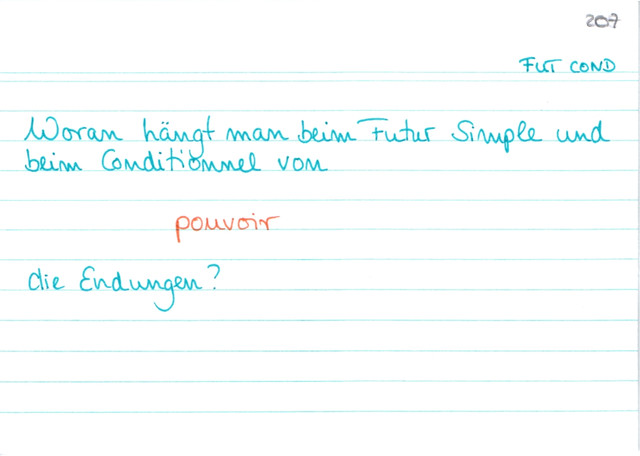 207
FUT COND
Woran hängt man beim Futur Simple und
beim Conditionnel von
pouvoir
die Endungen?